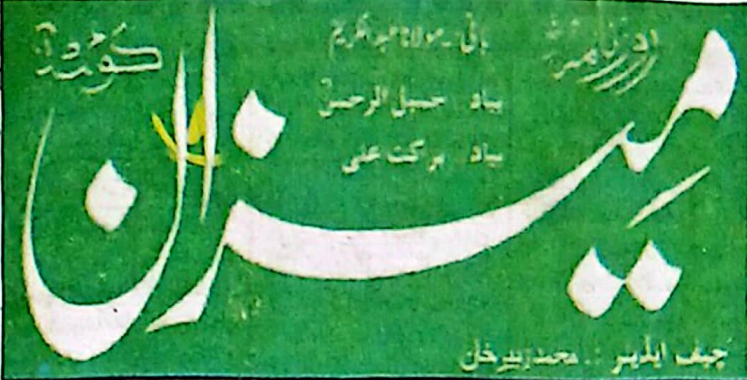 روزنامہ
میزان
کوئٹہ
بانی۔ مولانا عبدالکریم
بیاد جمیل الرحمن
بیاد برکت علی
چیف ایڈیٹر :۔ محمد زبیر خان